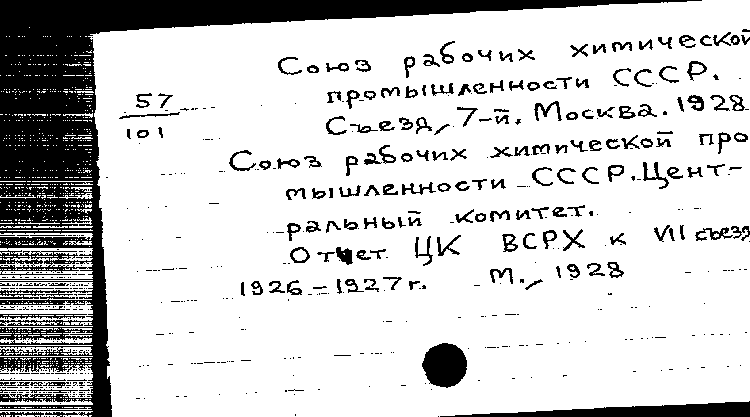 Союз рабочих химической
57 промышленности СССР.
101 Съезд, 7-й. Москва. 1928
Союз рабочих химической про
мышленности СССР. Цент-
ральный комитет.
Отчет ЦК ВСРХ к VII съезд
1926-1927 г. М., 1928